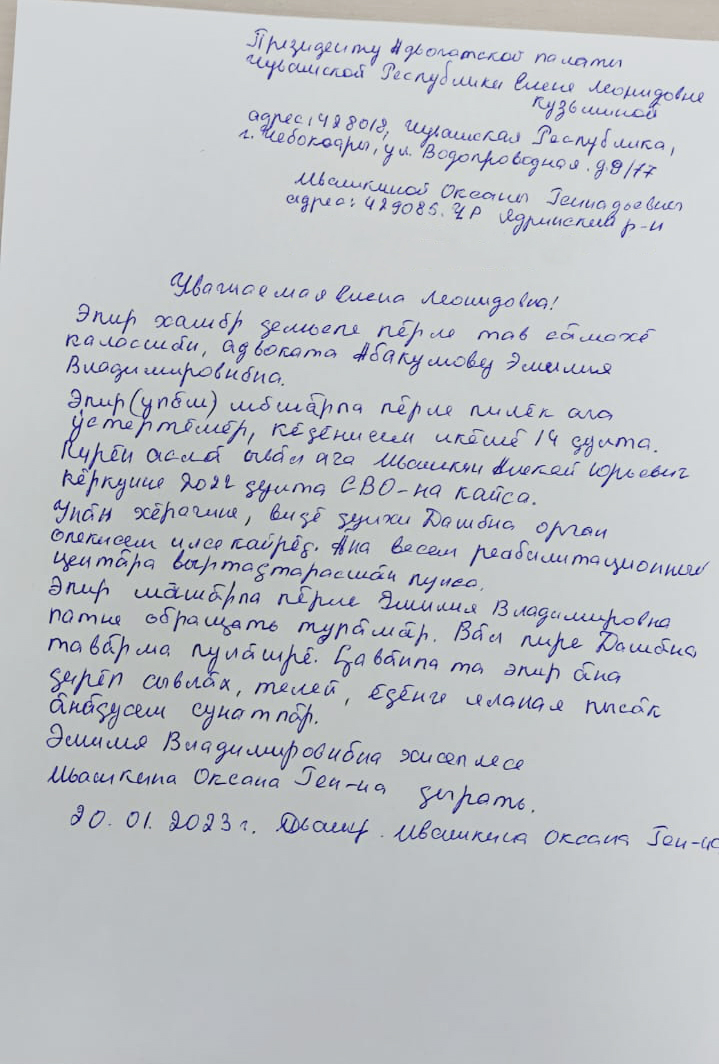 Президенту Адвокатской палаты
Чувашской Республики Елене Леонидовне
Кузьминой
адрес: 428018, Чувашская Республика,
г. Чебоксары, ул. Водопроводная. д.9/17
Ивашкиной Оксаны Геннадьевны
адрес: 429085. ЧР Ядринский р-н
Уважаемая Елена Леонидовна!
Эпир хамӑр ҫемьепе пӗрле тав сӑмахӗ
каласшӑн, адвоката Абакумову Эмилия
Владимировнӑна.
Эпир (упӑшк) мӑшӑрпа пӗрле пилӗк ача
ӳстертӗмӗр, кӗҫӗннисем иккӗшӗ 14 ҫулта.
Пирӗн аслӑ ывӑл ача Ивашкин Алексей Юрьевич
кӗркунне 2022 ҫулта СВО-на кайса.
Унӑн хӗрачине, виҫӗ ҫулхи Дашӑна орган
опекисем илсе кайрӗҫ. Ана весем реабилитационный
центӑра вырнаҫтарасшӑн пулса.
Эпир мӑшӑрпа пӗрле Эмилия Владимировна
патне обращать турӑмӑр. Вӑл пире Дашӑна
тавӑрма пулӑшрӗ. Ҫавӑнпа та эпир ӑна
ҫирӗп сывлӑх, телей, ӗҫӗнче яланах пысӑк
ӑнӑҫусем сунатпӑр.
Эмилия Владимировнӑна хисеплесе
Ивашкина Оксана Ген-на ҫырать.
20.01.2023г. Ивашкина Оксана Ген-на